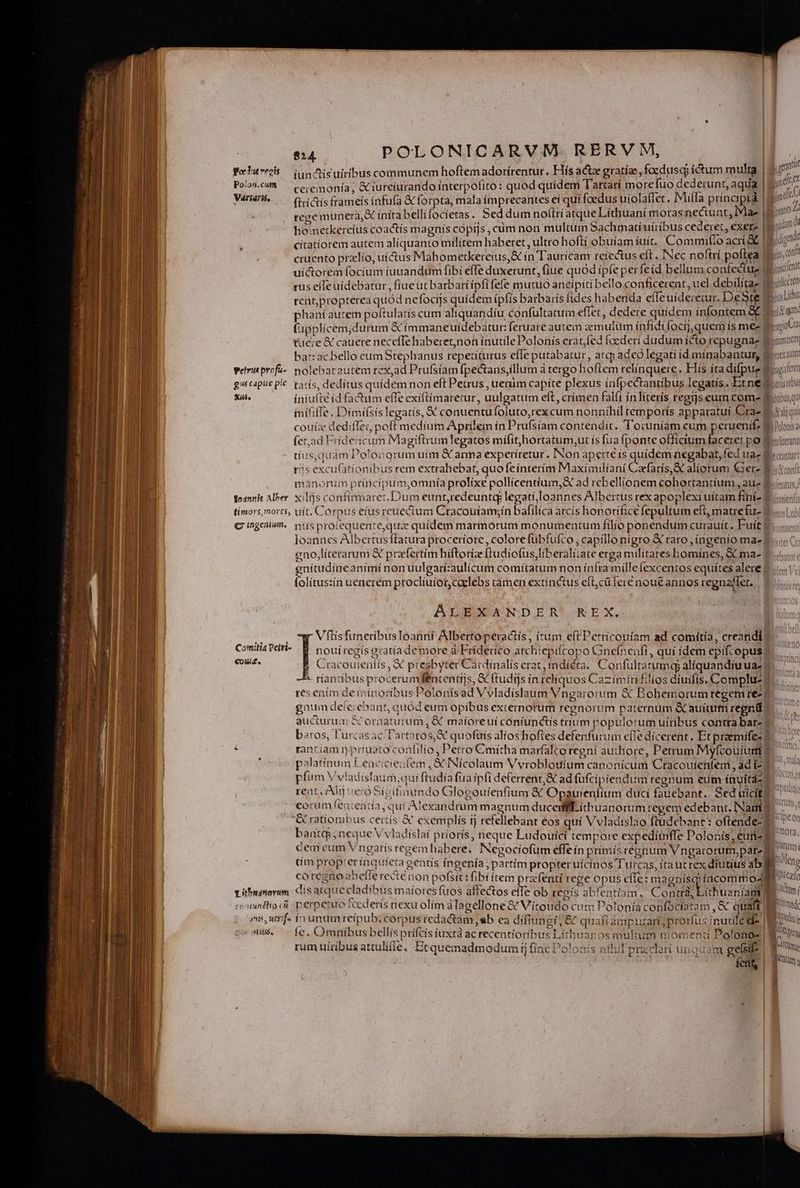 824 POLONICARVM RERVM,
iunctis uiribus communem hostem adorirentur. His actæ gratiæ, fœdusq; ictum multa
ceremonia, & iureiurando interposito: quod quidem Tartari more suo dederunt, aqua
strictis frameis infusa & sorpta, mala imprecantes ei qui fœdus uiolasset. Missa principia
rege munera, & inita belli societas. Sed dum nostri atque Lithuani moras nectunt, Mae
hometkereius coactis magnis copijs, cùm non multum Sachmati uiribus cederet, exer-
citationem autem aliquanto militem haberet, ultro hosti obuiam iuit. Commisso acri &
cruento prælio, uictus Mahometkereius, & in Tauricam reiectus est. Nec nostri postea
uictorem socium iuuandum sibi esse duxerunt, siue quòd ipse per se id bellum confectu-
rus esse uidebatur, siue ut barbari ipsi sese mutuo ancipiti bello conficerent, uel debilita-
rent, propterea quòd ne socijs quidem ipsis barbaris fides habenda esse uideretur. De Ste
phani autem postulatis cum aliquandiu consultatum esset, dedere quidem insontem &
supplicem, durum & immane uidebatur: seruare autem æmulum infidi socij, quem is me-
tuere & cauere necesse haberet, non inutile Polonis erat, sed fœderi dudum icto repugna-
bat: ac bello eum Stephanus repetiturus esse putabatur, atq; adeò legati id minabantur,
nolebat autem rex, ad Prussiam spectans, illum à tergo hostem relinquere. His ita dispu-
tatis, deditus quidem non est Petrus, uerùm capite plexus inspectantibus legatis. Et ne
iniuste id factum esse existimaretur, uulgatum est, crimen falsi in literis regijs eum com-
misisse. Dimissis legatis, & conuentu soluto, rex cum nonnihil temporis apparatui Cra-
couiæ dedisset, post medium Aprilem in Prussiam contendit. Toruniam cum peruenis-
set, ad Fridericum Magistrum legatos misit, hortatum, ut is sua sponte officium faceret po
tius, quàm Polonorum uim & arma experiretur. Non apertè is quidem negabat, sed ua-
rijs excusationibus rem extrahebat, quo se interim Maximiliani Cæsaris, & aliorum Ger-
manorum principum, omnia prolixè pollicentium, & ad rebellionem cohortantium, au-
xilijs confirmaret. Dum eunt, redeuntq; legati, Ioannes Albertus rex apoplexi uitam fini-
uit. Corpus eius reuectum Cracouiam, in basilica arcis honorificè sepultum est, matre su-
nus prosequente, quæ quidem marmorum monumentum filio ponendum curauit. Fuit
Ioannes Albertus statura proceriore, colore subfusco, capillo nigro & raro, ingenio ma-
gno, literarum & præsertim historiæ studiosus, liberalitate erga militares homines, & ma-
gnitudine animi non uulgari: aulicum comitatum non infra mille sexcentos equites alere
solitus: in uenerem procliuior, cælebs tamen extinctus est, cũ ferè nouẽ annos regnasset.
ALEXANDER REX.
Vstis funeribus Ioanni Alberto peractis, itum est Petricouiam ad comitia, creandi
noui regis gratia de more à Friderico archiepiscopo Gnesnensi, qui idem episcopus
Cracouiensis, & presbyter Cardinalis erat, indicta. Consultatumq; aliquandiu ua-
riantibus procerum sententijs, & studijs in reliquos Cazimiri filios diuisis. Complu-
res enim de minoribus Polonis ad Vvladislaum Vngarorum & Bohemorum regem re-
gnum deferebant, quòd eum opibus externorum regnorum paternum & auitum regnũ
aucturum & ornaturum, & maiore ui coniunctis trium populorum uiribus contra bar-
baros, Turcas ac Tartaros, & quosuis alios hostes defensurum esse dicerent. Et præmise-
rant iam ij priuato consilio, Petro Cmitha marsalco regni authore, Petrum Myscouium
palatinum Lenciciensem, & Nicolaum Vvroblouium canonicum Cracouiensem, ad i-
psum Vvladislaum, qui studia sua ipsi deferrent, & ad suscipiendum regnum eum inuita-
rent. Alij uerò Sigismundo Glogouiensium & Opauiensium duci fauebant. Sed uicit
eorum sententia, qui Alexandrum magnum ducem Lithuanorum regem edebant. Nam
& rationibus certis & exemplis ij refellebant eos qui Vvladislao studebant: ostende-
bantq;, neque Vvladislai prioris, neque Ludouici tempore expediuisse Polonis, eun-
dem cum Vngaris regem habere. Negociosum esse in primis regnum Vngarorum, par-
tim propter inquieta gentis ingenia, partim propter uicinos Turcas, ita ut rex diutius ab
eo regno abesse rectè non possit: sibi item præsenti rege opus esse: magnisq; incommo-
dis atque cladibus maiores suos affectos esse ob regis absentiam. Contrà, Lithuaniam
perpetuo fœderis nexu olim à Iagellone & Vitoudo cum Polonia consociatam, & quasi
in unum reipub. corpus redactam, ab ea disiungi, & quasi amputari, prorsus inutile es-
se. Omnibus bellis priscis iuxtà ac recentioribus Lithuanos multum momenti Polono-
rum uiribus attulisse. Et quemadmodum ij sine Polonis nihil præclari unquam gessis-
sent,
Velut regis
Polon. cum
Varijs.
Petrus profu-
gus capite ple
xus.
Ioannis Alber
ti mors, mores,
& ingenium.
Comitia Petri-
couiæ.
Lithuanorum